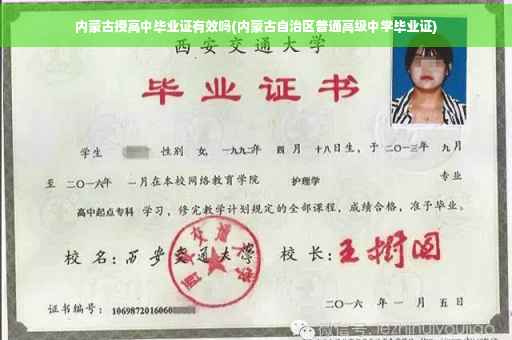 内蒙古授高中毕业证有效吗(内蒙古自治区普通高级中学毕业证)
西安交通大学
毕业证书
学生 性别 女, 一九九二年 四月 十八日生, 于二〇一三年 九月
至 二〇一六年 一月在本校网络教育学院 护理学 专业
高中起点专科 学习, 修完教学计划规定的全部课程, 成绩合格, 准予毕业。
校名: 西安交通大学 校长: 王树国
西安交通大学
证书编号: 1069872016060
二〇一六年 一月五日
微信号: jezhihuiyoujiao